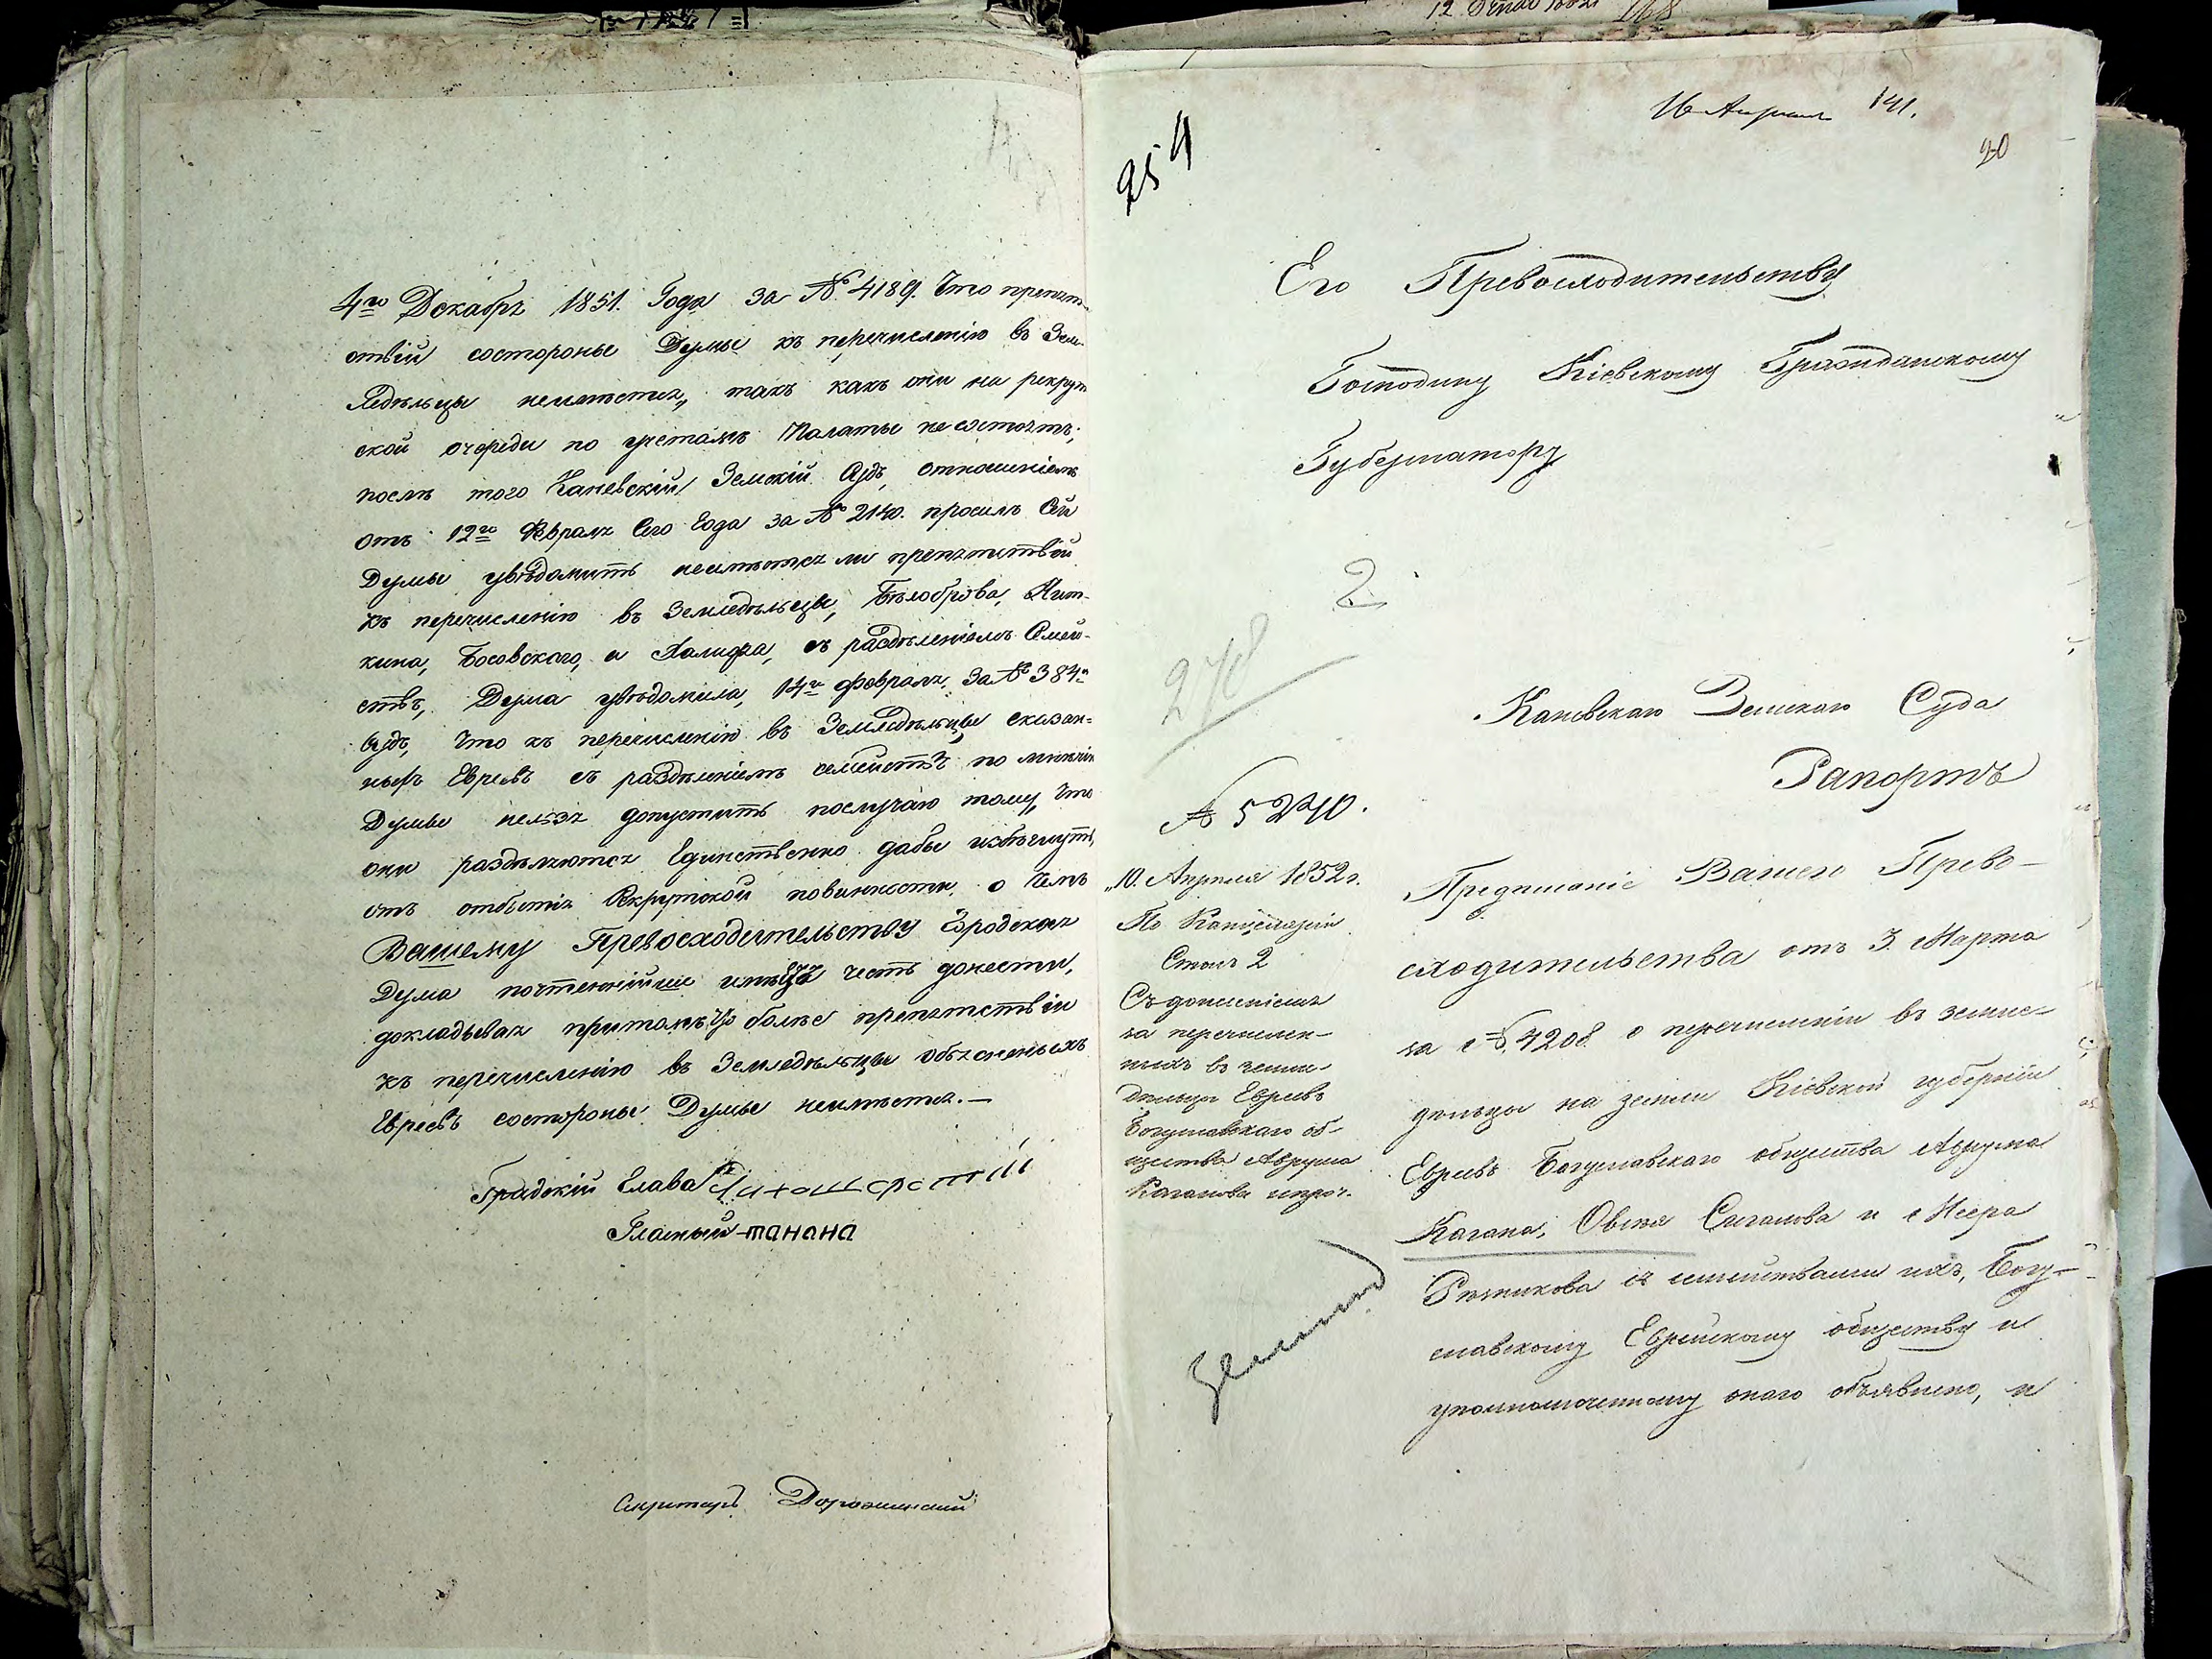 4го Декабря 1851. Года за № 4189. Что препят-
ствій состороны Думы къ перечисленію въ Земле-
дѣльцы неимѣется, такъ какъ они на рекрут
ской очереди по учетамъ Палаты не состоятъ;
послѣ того Каневскій Земскій Судъ, отношеніемъ
отъ 12го Февраля Сего Года за № 2140. просилъ Сей
Думы увѣдомить неимѣется ли препятствій
къ перечисленію въ Земледѣльцы, Бѣлоброва, Кит-
кина, Босовского, и Халифа, съ раздѣленіемъ Семей-
ствъ, Дума увѣдомила, 14го Февраля, За № 384м
Судъ, что къ перечисленію въ Земледѣльцы сказан-
ныхъ Евреевъ съ раздѣленіемъ семействъ по мнѣнію
Думы нельзя допустить послучаю тому, что
они раздѣляются Единственно дабы избѣгнуть
отъ отбытія Рекрутской повинности, о чемъ
Вашему Превосходительству Городская
Дума почтеннѣйше имѣетъ честь донести,
докладывая притомъ, что болѣе препятствій
къ перечисленію въ Земледѣльцы объясненыхъ
Евреевъ состороны Думы неимѣется.—
Градскій Глава
Гласный
Секретарь Дорожинский
16 Апреля 141.
20
254
Его Превосходительству
Господину Кіевскому Гражданскому
Губернатору
2
278
Каневскаго Земскаго Суда
Рапортъ
№ 5240.
„10. Апреля 1852 г.
По Канцеляріи
Столъ 2
Съ донесеніемъ
за перечислен-
ныхъ въ земле-
дельцы Евреевъ
Богуславскаго об-
щества Аврума
Каганова ипроч.
Предписаніе Вашего Прево-
сходительства отъ 3. Марта
за № 4208 о перечисленіи въ земле-
дельцы на земли Кіевской губерніи
Евреевъ Богуславскаго общества Аврума
Кагана, Овсея Саганова и Меера
Ротикова съ семействами ихъ, Богу-
славскому Еврейскому обществу и
уполномоченному онаго объявлено, и